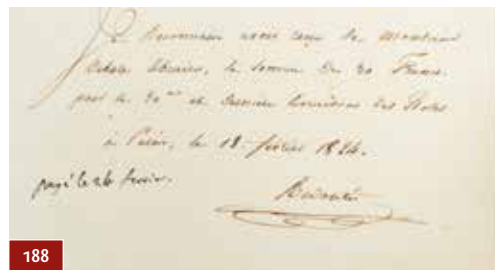 Je Reconnais avoir reçu de monsieur
libraire, la somme de 20 Francs
pour la 20me et dernière livraison des
à Paris, le 18 février 1824.
payé le 26 février.
188